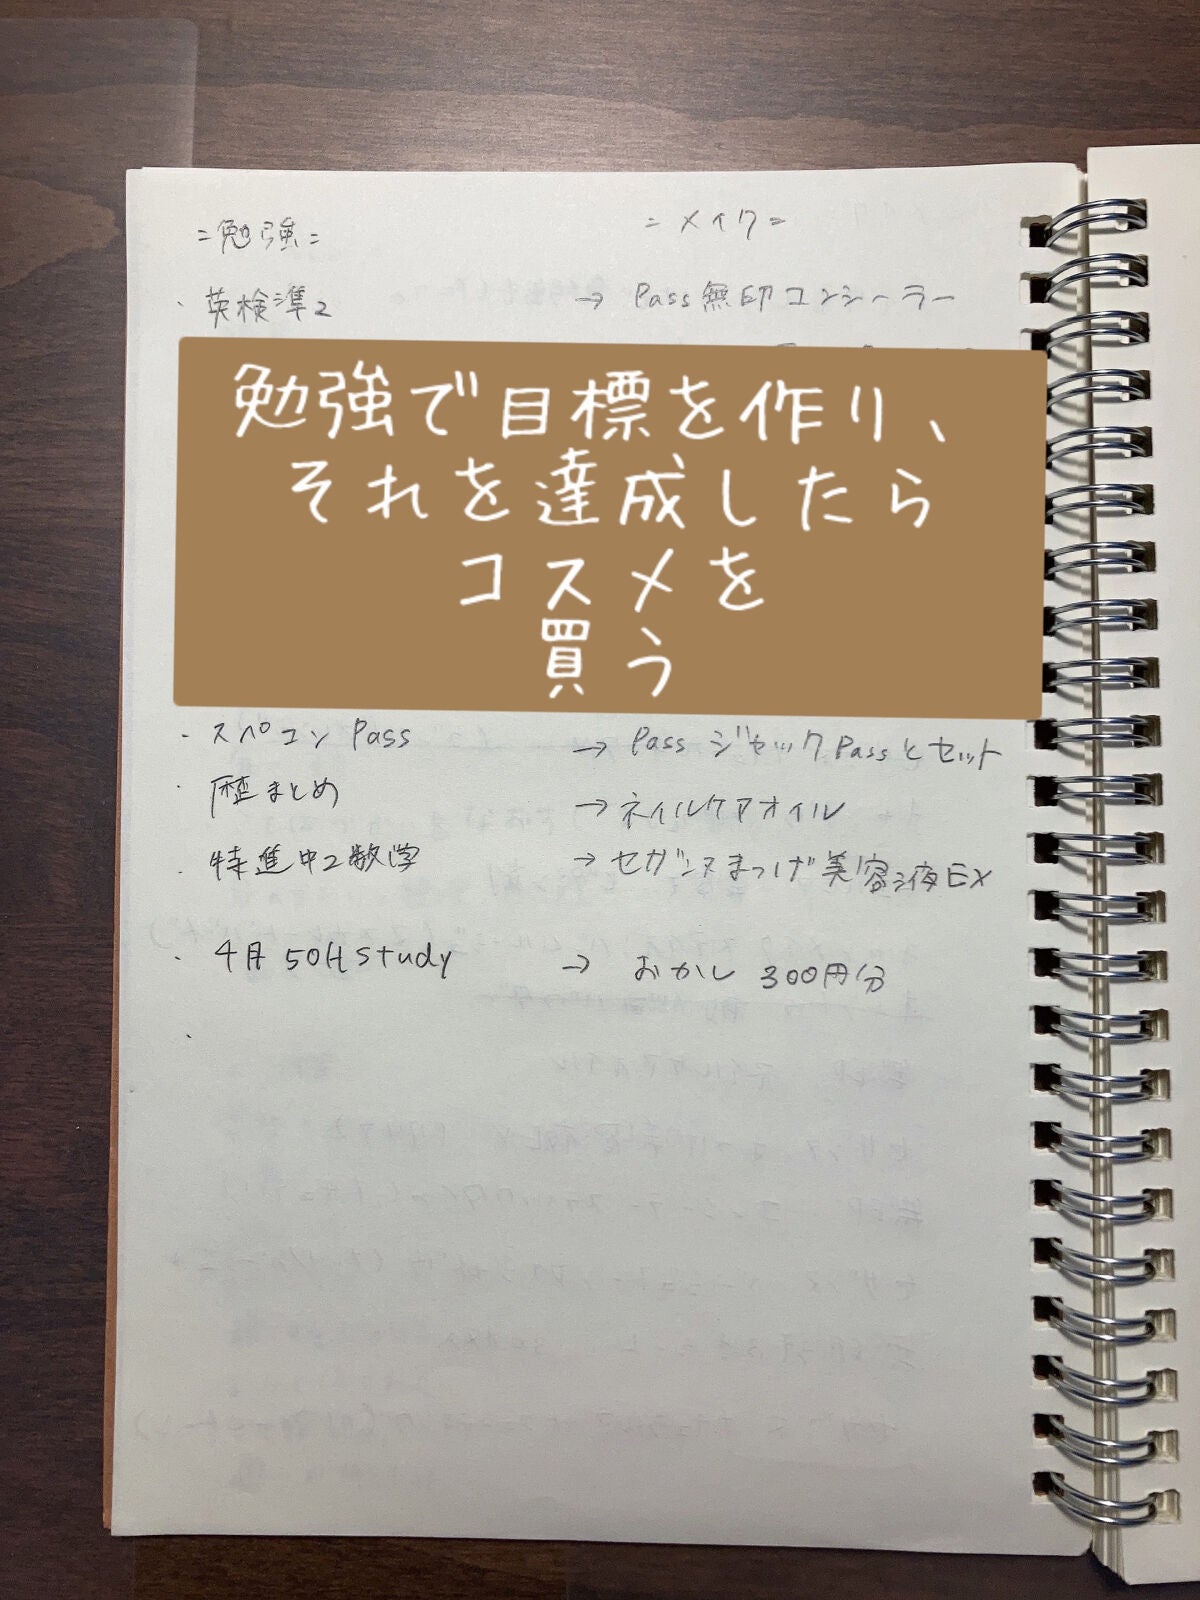 =勉強=
=メイク=
・英検準2 → Pass 無印コンシーラー
勉強で目標を作り、
それを達成したら
コスメを
買う
・スペコン Pass → Pass ジャックPassとセット
・歴まとめ → ネイルケアオイル
・特進中2数学 → セザンヌまつげ美容液EX
・4月 50H study → おかし 300円分
・